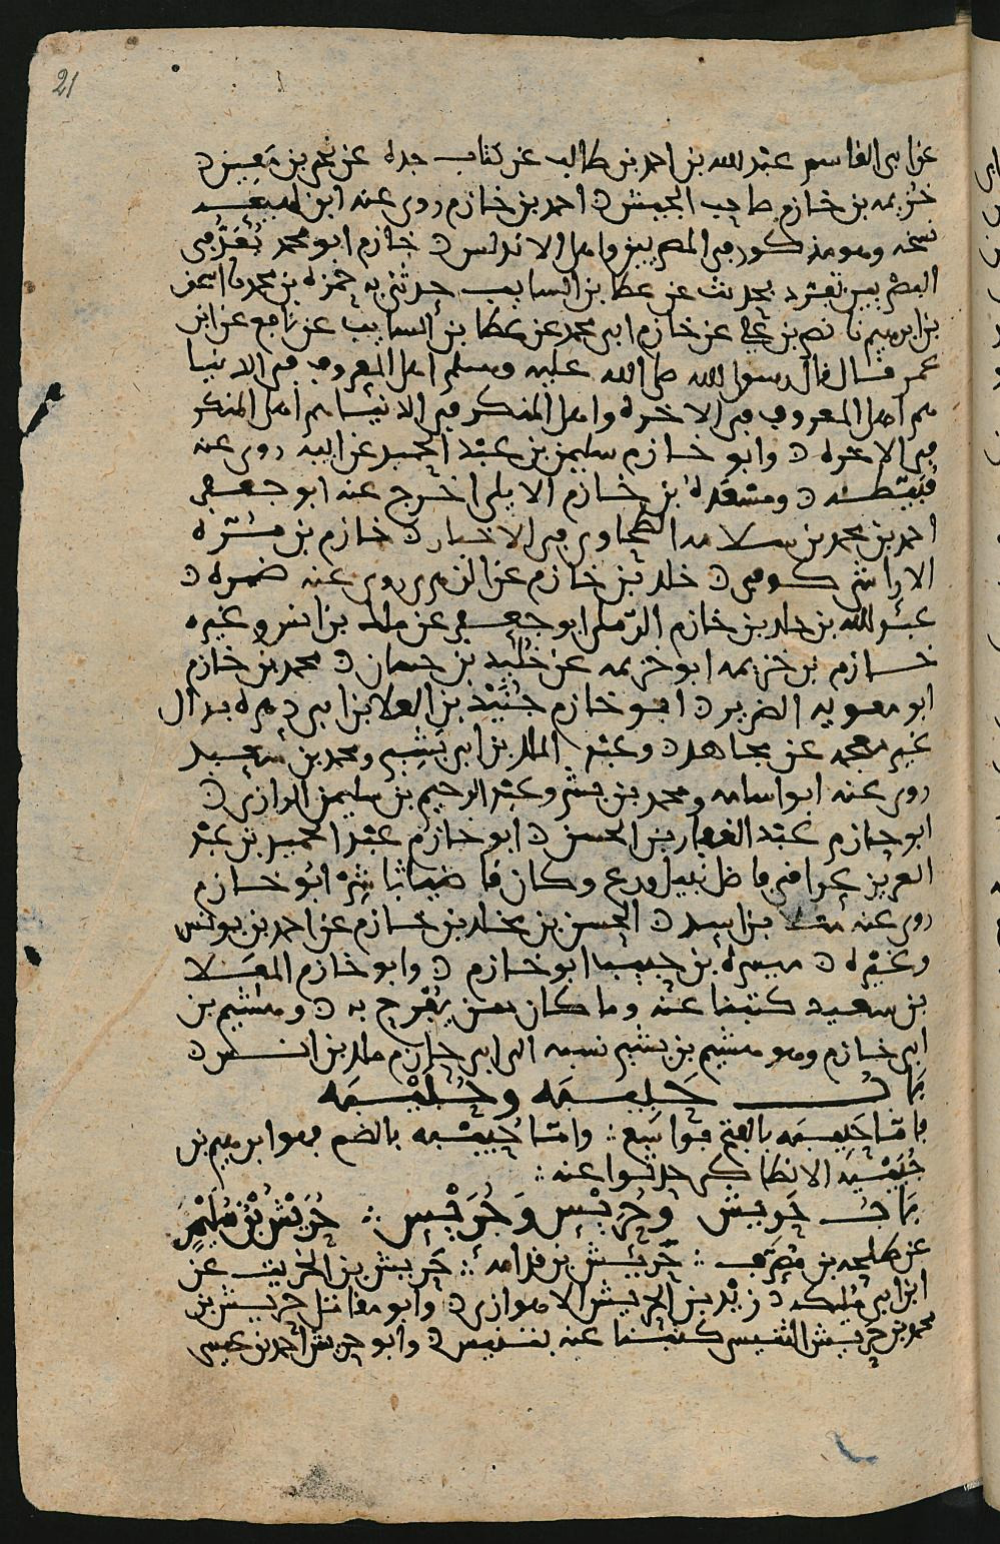 21
عن ابى القاسم عبد الله بن احمد بن طالب عن كتاب جده عن يحيى بن معين
خزيمه بن خازم صاحب الجيش احمد بن خازم روى عنه ابن لهيعه
نسخه وهو مذكور فى المصريين واهل الاندلس خازم ابو محمد يعد فى
البصريين تفرد بحديث عن عطا بن السايب حدثنى به حمزه بن محمد نا اسحق
بن ابرهيم نا نصر بن على عن خازم ابى محمد عن عطا بن السايب عن نافع عن ابن
عمر قال قال رسول الله صلى الله عليه وسلم اهل المعروف فى الدنيا
هم اهل المعروف فى الاخره واهل المنكر فى الدنيا هم اهل المنكر
فى الاخره وابو خازم سليمن بن عبد الحميد عن ابيه روى عنه
ومسعده بن خازم الايلى اخرج عنه ابو جعفر
احمد بن محمد بن سلامه الطحاوى فى الاخبار خازم بن
كوفى خلد بن خازم عن الزهرى روى عنه ضمره
عبد الله بن خلد بن خازم الرملى ابو جعفر عن ملك بن انس وغيره
خازم بن خزيمه ابو خزيمه عن خليد بن حسان محمد بن خازم
ابو معويه الضرير ابو خازم جنيد بن العلا بن ابى دهره بدال
غير معجمه عن مجاهد وعبد الملك بن ابى بشير ومحمد بن سعيد
روى عنه ابو اسامه ومحمد بن بشر وعبد الرحيم بن سليمن الرازى
ابو خازم عبد الغفار بن الحسن ابو خازم عبد الحميد بن عبد
العزيز عراقى فاضل نبيل ورع وكان قاضيا ابو خازم
روى عنه بن اسد الحسن بن مخلد بن خازم عن احمد بن يونس
وغيره ميسره بن حبيب ابو خازم وابو خازم المعلا
بن سعيد كتبنا عنه وما كان ممن يفرح به وهشيم بن
ابى خازم وهو هشيم بن بشير نسبه الى ابى خازم ملك بن انس
باب حليمه وحليمه
فاما حليمه بالفتح فواسع واما بالضم فهو ابرهيم بن
الانطاكى حدثوا عنه
باب حريش وحريس وحريس حريش بن سليم
عن طلحه بن مصرف حريش بن قدامه حريش بن الخريت عن
ابن ابى مليكه زيد بن الحريش الاهوازى وابو مقاتل حريش بن
محمد بن حريش كتبنا عنه بتنيس وابو حريش احمد بن عيسى